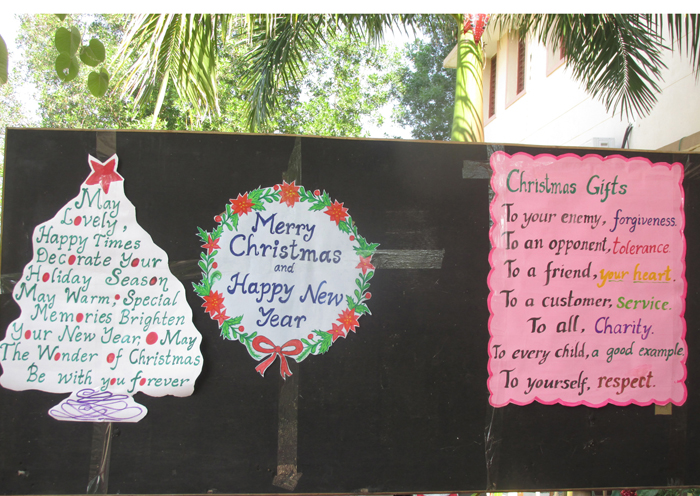 May
Lovely,
Happy Times
Decorate Your
Holiday Season
May Warm, Special
Memories Brighten
Your New Year, May
The Wonder of Christmas
Be with you forever
Merry
Christmas
and
Happy New
Year
Christmas Gifts
To your enemy, forgiveness.
To an opponent, tolerance.
To a friend, your heart.
To a customer, service.
To all, Charity.
To every child, a good example.
To yourself, respect.